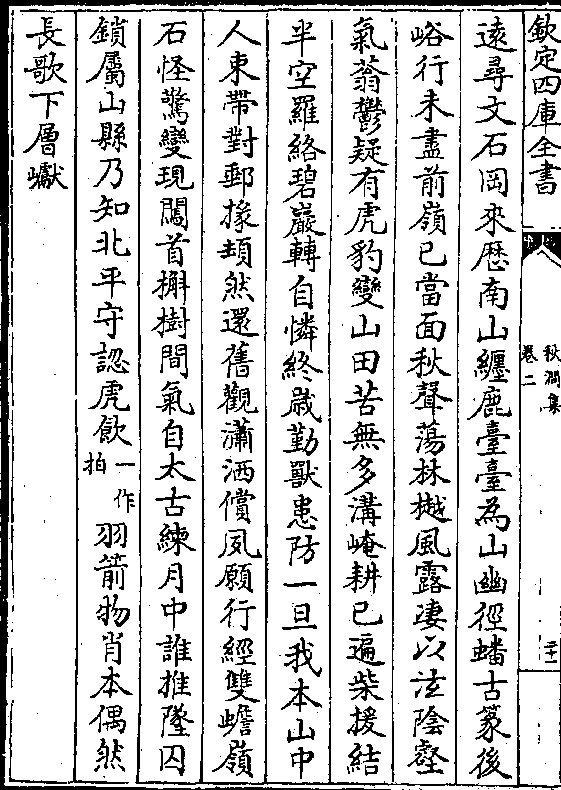 欽定四庫全書
秋澗集
卷二
二十一
逺尋文石岡來歴南山纒鹿臺臺為山幽徑蟠古篆後
峪行未盡前嶺已當面秋聲蕩林樾風露凄以泫陰壑
氣蓊鬱疑有虎豹變山田苦無多溝崦耕已遍柴援結
半空羅絡碧巖轉自憐終歳勤獸患防一旦我本山中
人束帶對郵掾頍然還舊觀瀟洒償夙願行經雙蟾嶺
石怪驚變現闖首槲樹間氣自太古練月中誰推墜囚
鎖屬山縣乃知北平守認虎飲一作拍羽箭物肖本偶然
長歌下層巘